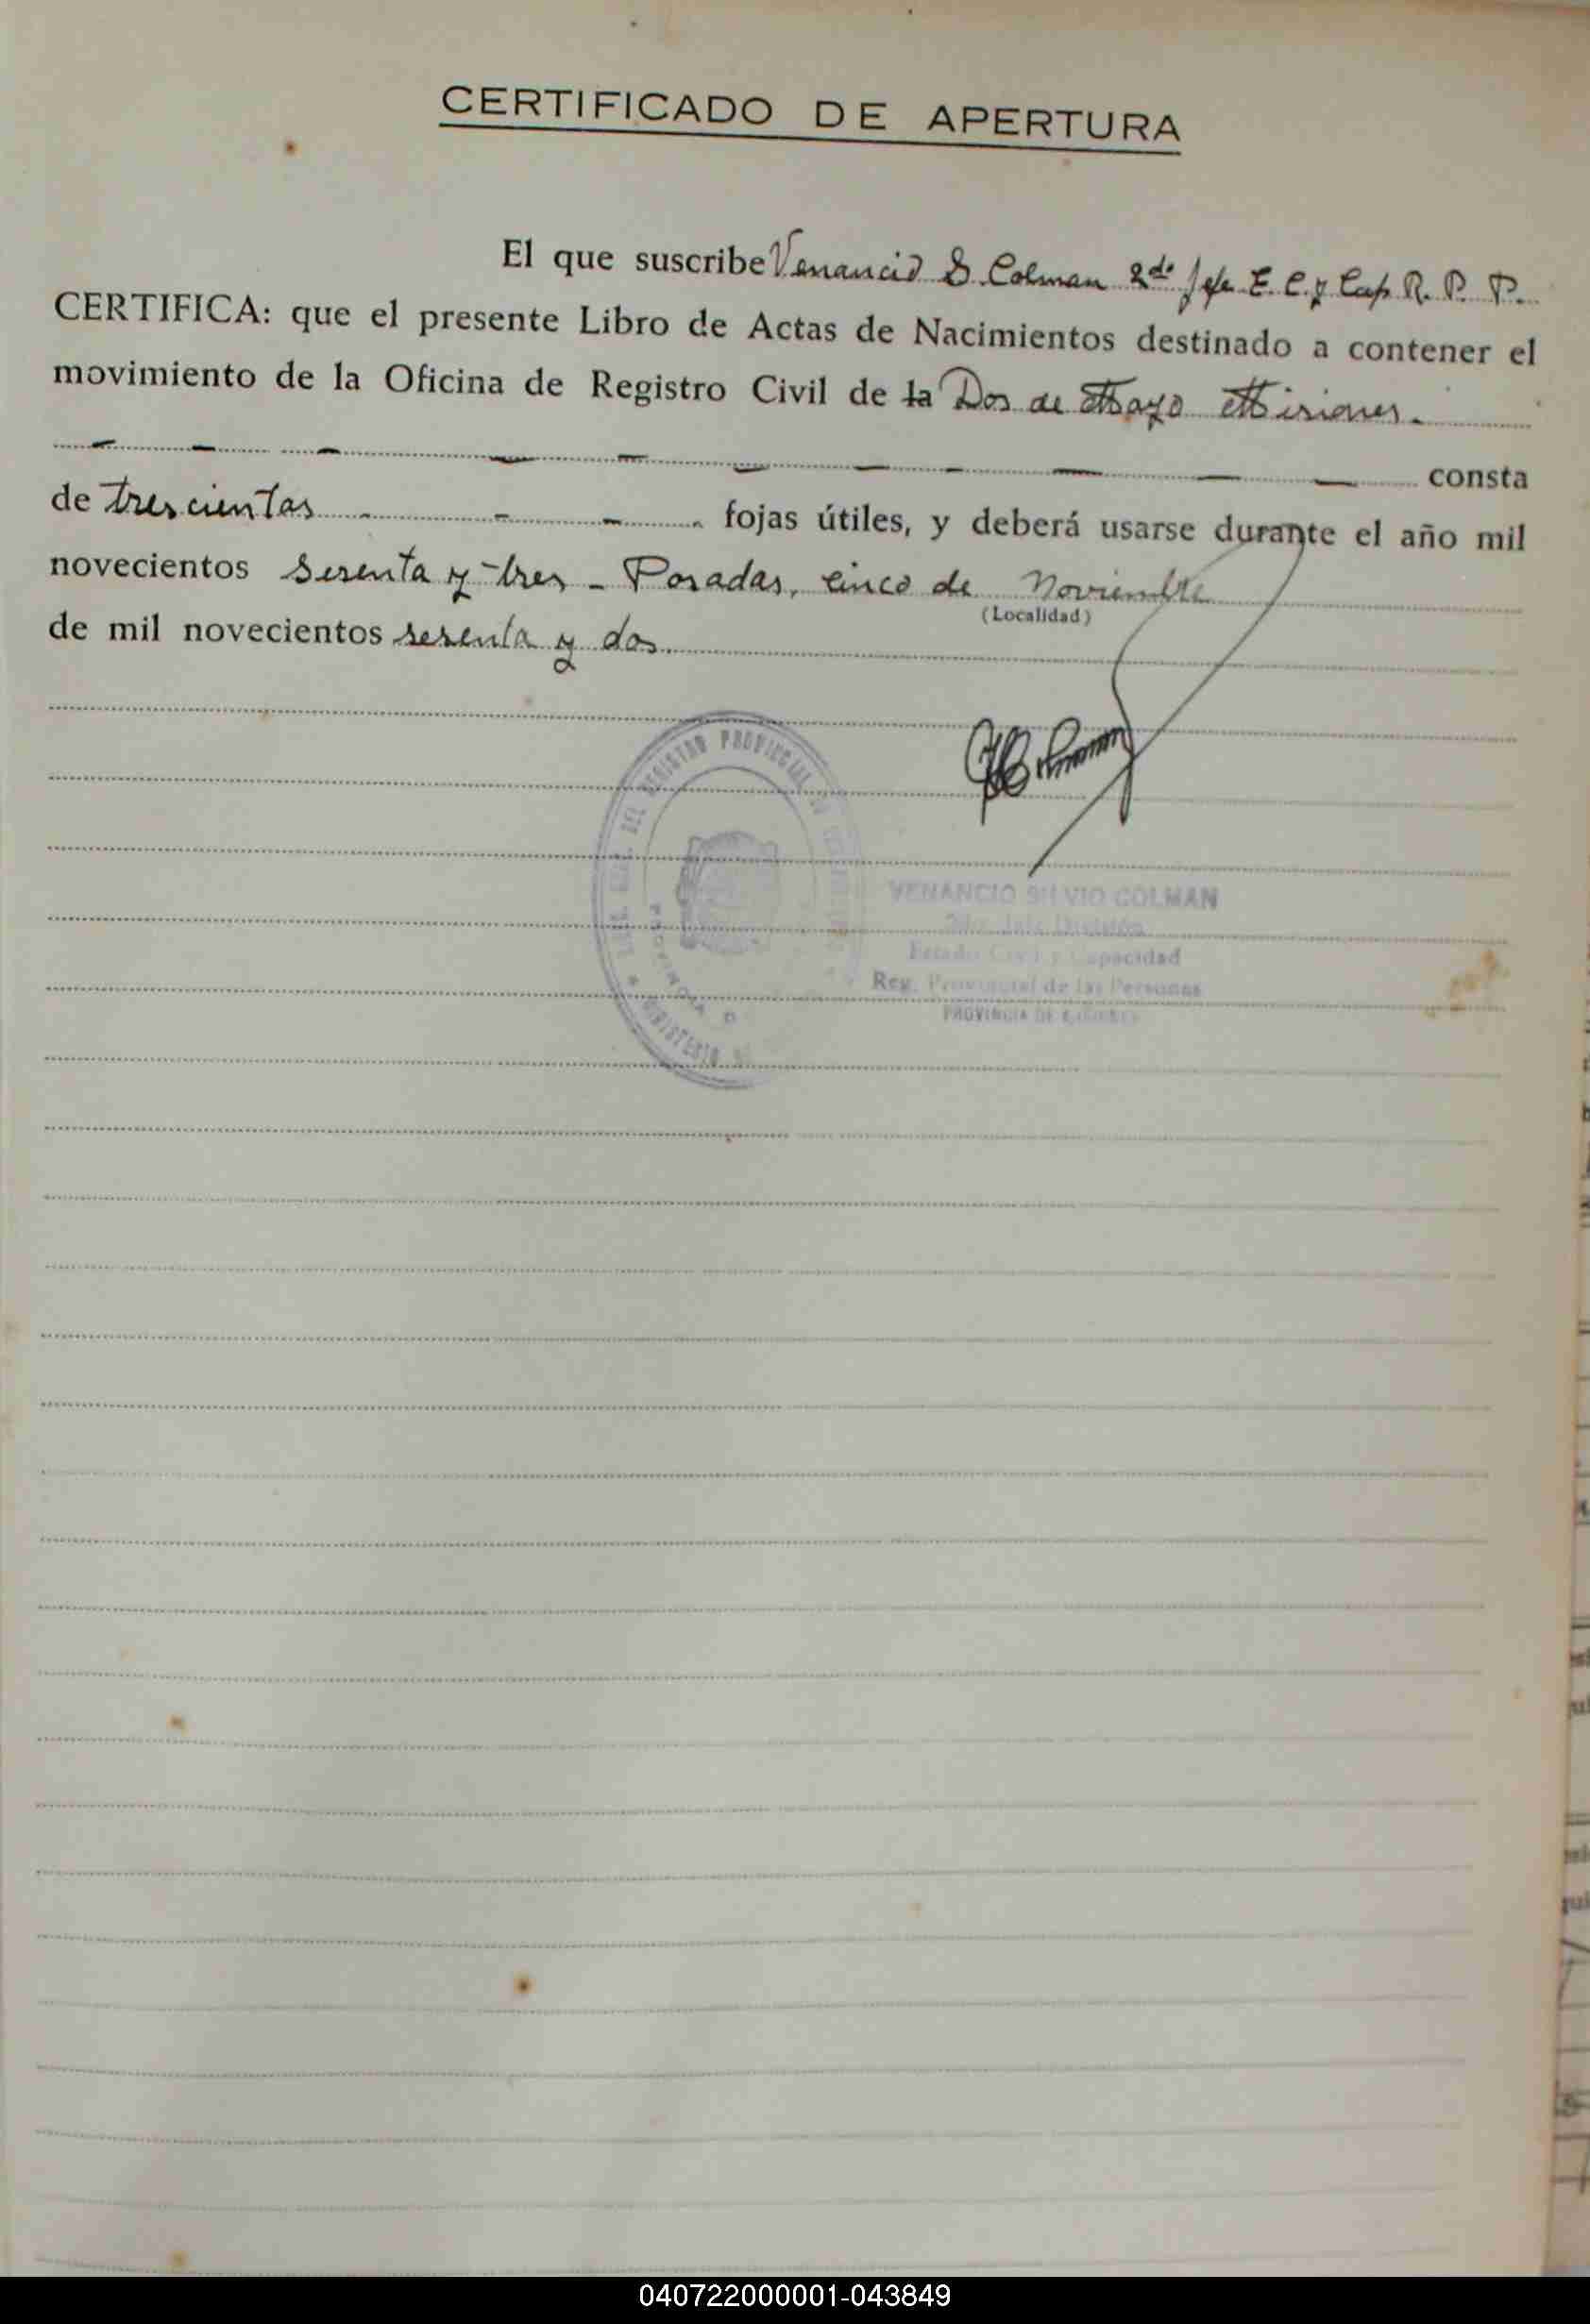 CERTIFICADO DE APERTURA
El que suscribe Venancio S. Colman 2do Jefe E. C. y Cap. R. P. P.
CERTIFICA: que el presente Libro de Actas de Nacimientos destinado a contener el
movimiento de la Oficina de Registro Civil de la Dos de Mayo Misiones.
consta
de trescientas fojas útiles, y deberá usarse durante el año mil
novecientos sesenta y tres - Posadas, cinco de Noviembre
(Localidad)
de mil novecientos sesenta y dos
DEL REGISTRO PROVINCIAL
PROVINCIA D
MINISTERIO
VENANCIO SILVIO COLMAN
2do. Jefe División
Estado Civil y Capacidad
Reg. Provincial de las Personas
PROVINCIA DE MISIONES
040722000001-043849